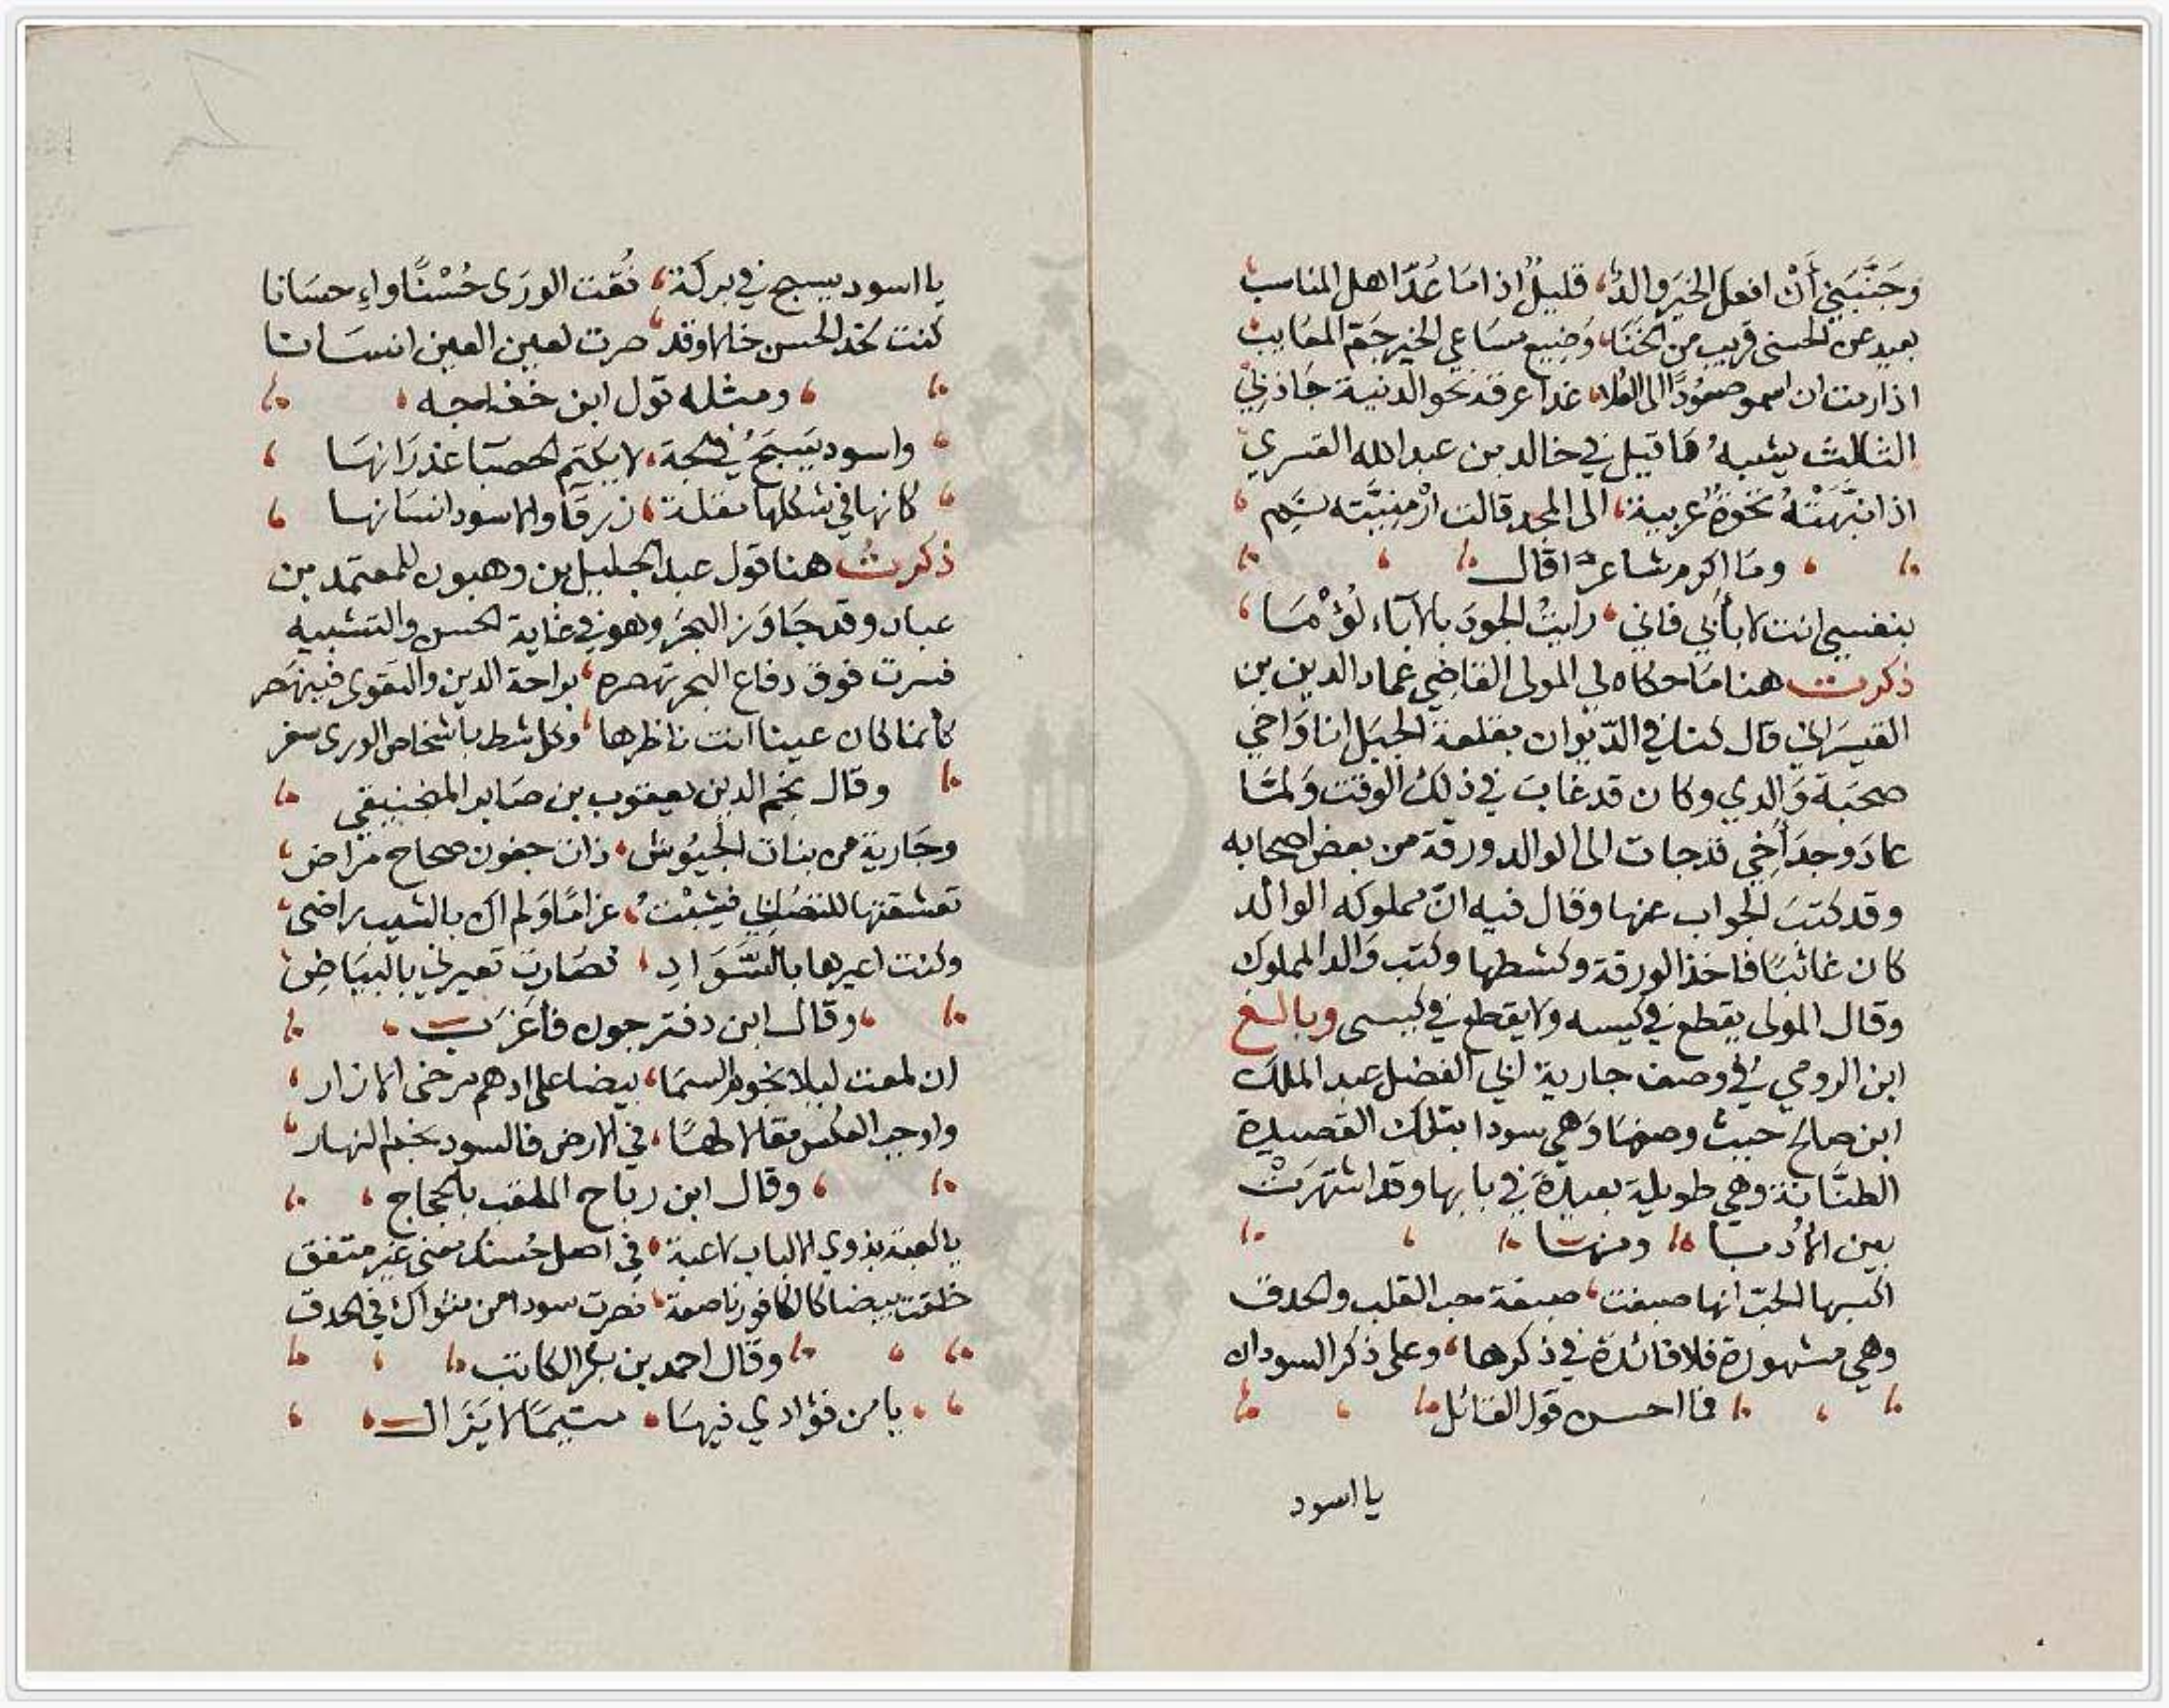 وَجَنَّبَنِي أَنْ افعل الخيَر والدٌ، قليلٌ اذا مَا عُدّ اهل المناسب
بعيد عن الحسنى قريب من الخنَا، وَضيع مسَاعي الخير جَمّ المعَايب
اذا رمت ان اسمو صعُودًا الى العُلا، غدا عرقه نحو الدنية جَاذبي
الثالث يشبهُ ما قيل في خالد بن عبد الله القسري
اذا نبَّهَتْهُ نخوةٌ عربية، الى المجد قالت ارْمنِيَّته نَم
ومَا اكرم شاعرًا قال
بنفسي انت لا بأبي فاني، رايتُ الجودَ بالآباء لؤْمَا
ذكرت هنا مَا حكاه لي المولى القاضي عماد الدين بن
القيسَراني قال كنا في الدّيوان بقلعة الجبَل انا وَاخي
صحبَة وَالدي وكان قد غابَ في ذلك الوقت وَلمّا
عادَ وجدَ أخي قد جات الى الوالد ورقة من بعض اصحابه
وقد كتبَ الجواب عنها وقال فيه انّ مملوكه الوالد
كان غائبًا فاخذ الورقة وكشطها وكتب وَالد المملوك
وقال المولى يقطع في كيسه ولا يقطع في كيسى وبالغ
ابن الرومي في وصف جارية ابي الفضل عبد الملك
ابن صالح حيث وصفهَا وَهي سودا بتلك القصيدة
الطنّانة وهي طويلة بعيدة في بابها وقد اشتهرَتْ
بين الأُدبَا ومنهَا
اكسبها الحبّ انها صبغت، صبغة حب القلب والحدق
وهي مشهورة فلا فائدة في ذكرها، وعلى ذكر السودان
فما احسن قول القائل
يا اسود
يا اسود يسبح في بركة، فُقت الورَى حُسْنًا واِحسَانا
كنت لخد الحسن خالا وقد، صرت لعين العين انسَانا
ومثله قول ابن خفاجه
واسود يَسبَحُ في لجة، لا يكتم الحصبَا غدرَانهَا
كانها في شكلها مقلة، زرقَا والاسود انسَانهَا
ذكرتُ هنا قول عبد الجليل بن وهبون للمعتمد بن
عباد وقد جَاوَز البحرَ وهو في غاية الحسن والتشبيه
فسرت فوق دفاع البحر تهصره، براحة الدين والتقوى فينهَصر
كأنما كان عينا انت ناظرها، وكل شط باشخاص الورى سفر
وقال نجم الدين يعقوب بن صَابر المنجنيقي
وجَارية من بنات الجيُوش، ذات جفون صحاح مرَاض
تعشقتها للتصَابي فشبْتُ، غرامًا وَلم اك بالشيب راضى
وكنت اعيرها بالسَّوَادِ، فصَارت تعيرني بالبيَاض
وقال ابن دفتر جون فأغرَب
ان لمعت ليلا نجوم السمَا، بيضا على ادهم مرخى الازار
واوجب العكس مقالا لهَا، في الارض فالسود نجوم النهار
وقال ابن رباح الملقب بالحجاج
يا لعبة بذوي الالباب لاعبة، في اصل حُسنك معنى غير متفق
خلقت بيضا كالكافور ناصعة، فصرت سودا من مثواك في الحدق
وقال احمد بن بكر الكاتب
يا من فؤادي فيهَا، متيمًا لا يَزَال